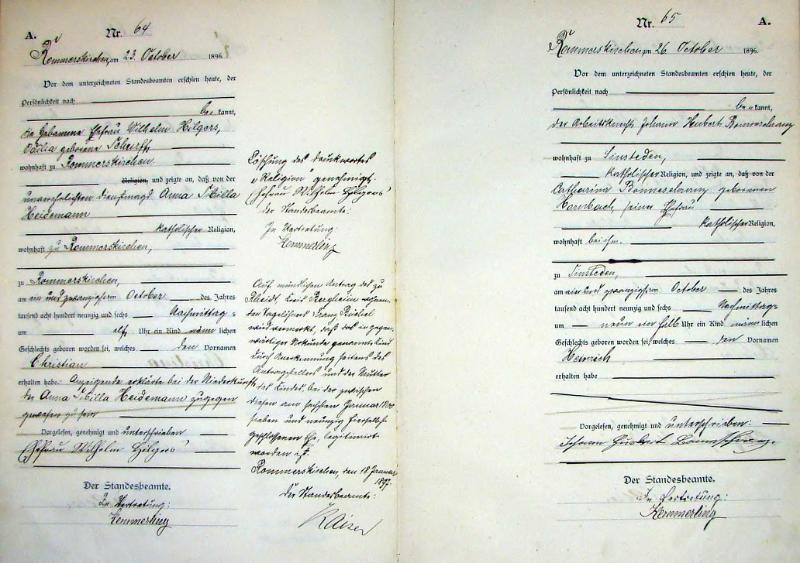 A.
Nr. 64
Rommerskirchen am 23. October 1896.
Vor dem unterzeichneten Standesbeamten erschien heute, der
Persönlichkeit nach
be kannt,
die Hebamme Ehefrau Wilhelm Hilgers,
geborene
wohnhaft zu Rommerskirchen
Religion, und zeigte an, daß von der
unverehelichten Dienstmagd Anna Sibilla
Heidemann
katholischer Religion,
wohnhaft zu Rommerskirchen,
zu Rommerskirchen,
am ein und zwanzigsten October des Jahres
tausend acht hundert neunzig und sechs Nachmittags
um elf Uhr ein Kind männlichen
Geschlechts geboren worden sei, welches den Vornamen
Christian
erhalten habe. Anzeigende erklärte bei der Niederkunft
der Anna Sibilla Heidemann zugegen
gewesen zu sein
Vorgelesen, genehmigt und unterschrieben
Ehefrau Wilhelm Hilgers
Der Standesbeamte.
In Vertretung:
Kemmerling
Löschung des Druckwortes
"Religion" genehmigt.
Ehefrau Wilhelm Hilgers
der Standesbeamte.
In Vertretung:
Kemmerling
Auf mündlichen Antrag des zu
Kreis Bergheim
den Tagelöhners Franz
wird vermerkt, daß das in gegen-
wärtiger Urkunde genannte Kind
durch Anerkennung seitens des
Antragstellers und der Mutter
des Kindes, bei der zwischen
diesen am sechsten Januar
sieben und neunzig
geschlossenen Ehe, legitimirt
worden ist.
Rommerskirchen, den 18 Januar
1897.
Der Standesbeamte:
Kaiser
Nr. 65
A.
Rommerskirchen am 26. October 1896.
Vor dem unterzeichneten Standesbeamten erschien heute, der
Persönlichkeit nach
be kannt,
der Johann Hubert
wohnhaft zu Sinsteden,
katholischer Religion, und zeigte an, daß von der
Catharina geborenen
seiner Ehefrau
katholischer Religion,
wohnhaft bei ihm.
zu Sinsteden,
am ein und zwanzigsten October des Jahres
tausend acht hundert neunzig und sechs Nachmittags
um neun ein halb Uhr ein Kind männlichen
Geschlechts geboren worden sei, welches den Vornamen
Heinrich
erhalten habe
Vorgelesen, genehmigt und unterschrieben.
Johann Hubert
Der Standesbeamte.
In Vertretung:
Kemmerling